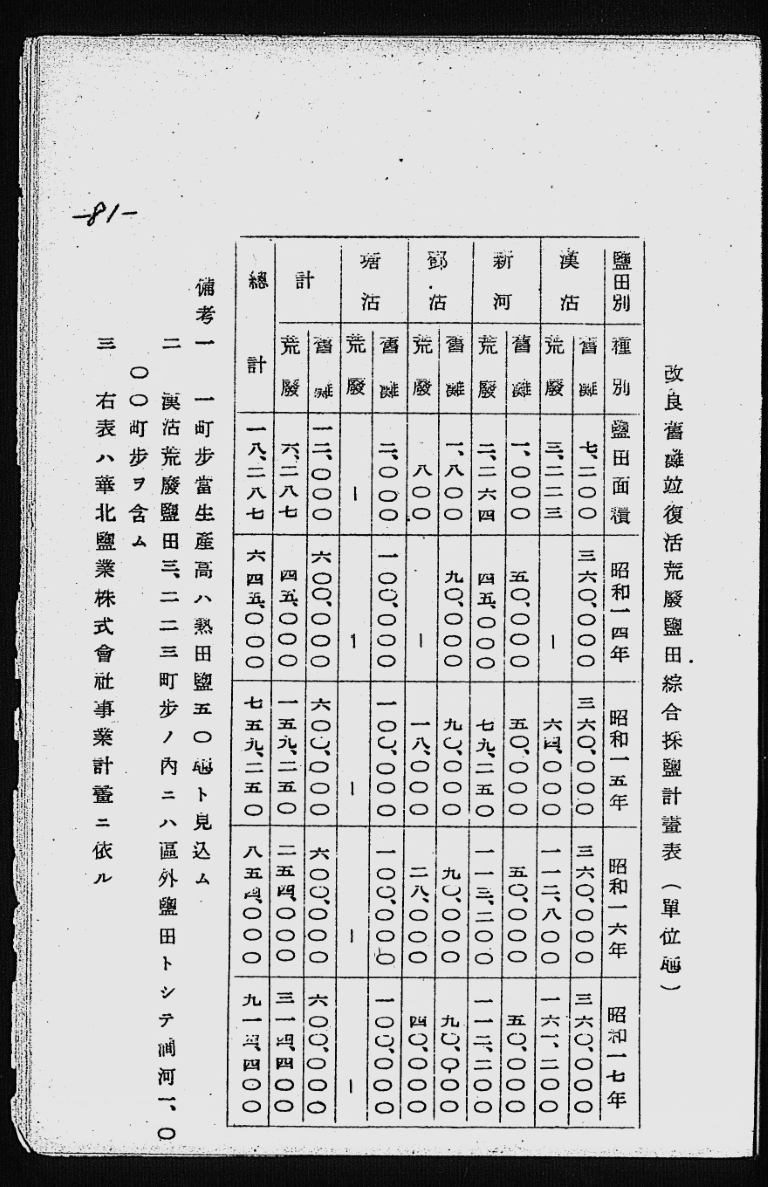 改良舊灘竝復活荒廢鹽田綜合採鹽計畫表(單位瓲)
鹽田別 種別 鹽田面積 昭和一四年 昭和一五年 昭和一六年 昭和一七年
漢沽 舊灘 七、二〇〇 三六〇、〇〇〇 三六〇、〇〇〇 三六〇、〇〇〇 三六〇、〇〇〇
荒廢 三、二二三 — 六四、〇〇〇 一一二、八〇〇 一六一、二〇〇
新河 舊灘 一、〇〇〇 五〇、〇〇〇 五〇、〇〇〇 五〇、〇〇〇 五〇、〇〇〇
荒廢 二、二六四 四五、〇〇〇 七九、二五〇 一一三、二〇〇 一一二、二〇〇
鄧沽 舊灘 一、八〇〇 九〇、〇〇〇 九〇、〇〇〇 九〇、〇〇〇 九〇、〇〇〇
荒廢 八〇〇 — 一八、〇〇〇 二八、〇〇〇 四〇、〇〇〇
塘沽 舊灘 二、〇〇〇 一〇〇、〇〇〇 一〇〇、〇〇〇 一〇〇、〇〇〇 一〇〇、〇〇〇
荒廢 — — — — —
計 舊灘 一二、〇〇〇 六〇〇、〇〇〇 六〇〇、〇〇〇 六〇〇、〇〇〇 六〇〇、〇〇〇
荒廢 六、二八七 四五、〇〇〇 一五九、二五〇 二五四、〇〇〇 三一四、四〇〇
總計 一八、二八七 六四五、〇〇〇 七五九、二五〇 八五四、〇〇〇 九一四、四〇〇
備考 一 一町步當生產高ハ熟田鹽五〇瓲ト見込ム
二 漢沽荒廢鹽田三、二二三町步ノ內ニハ區外鹽田トシテ澗河一、〇
〇〇町步ヲ含ム
三 右表ハ華北鹽業株式會社事業計畫ニ依ル
—81—